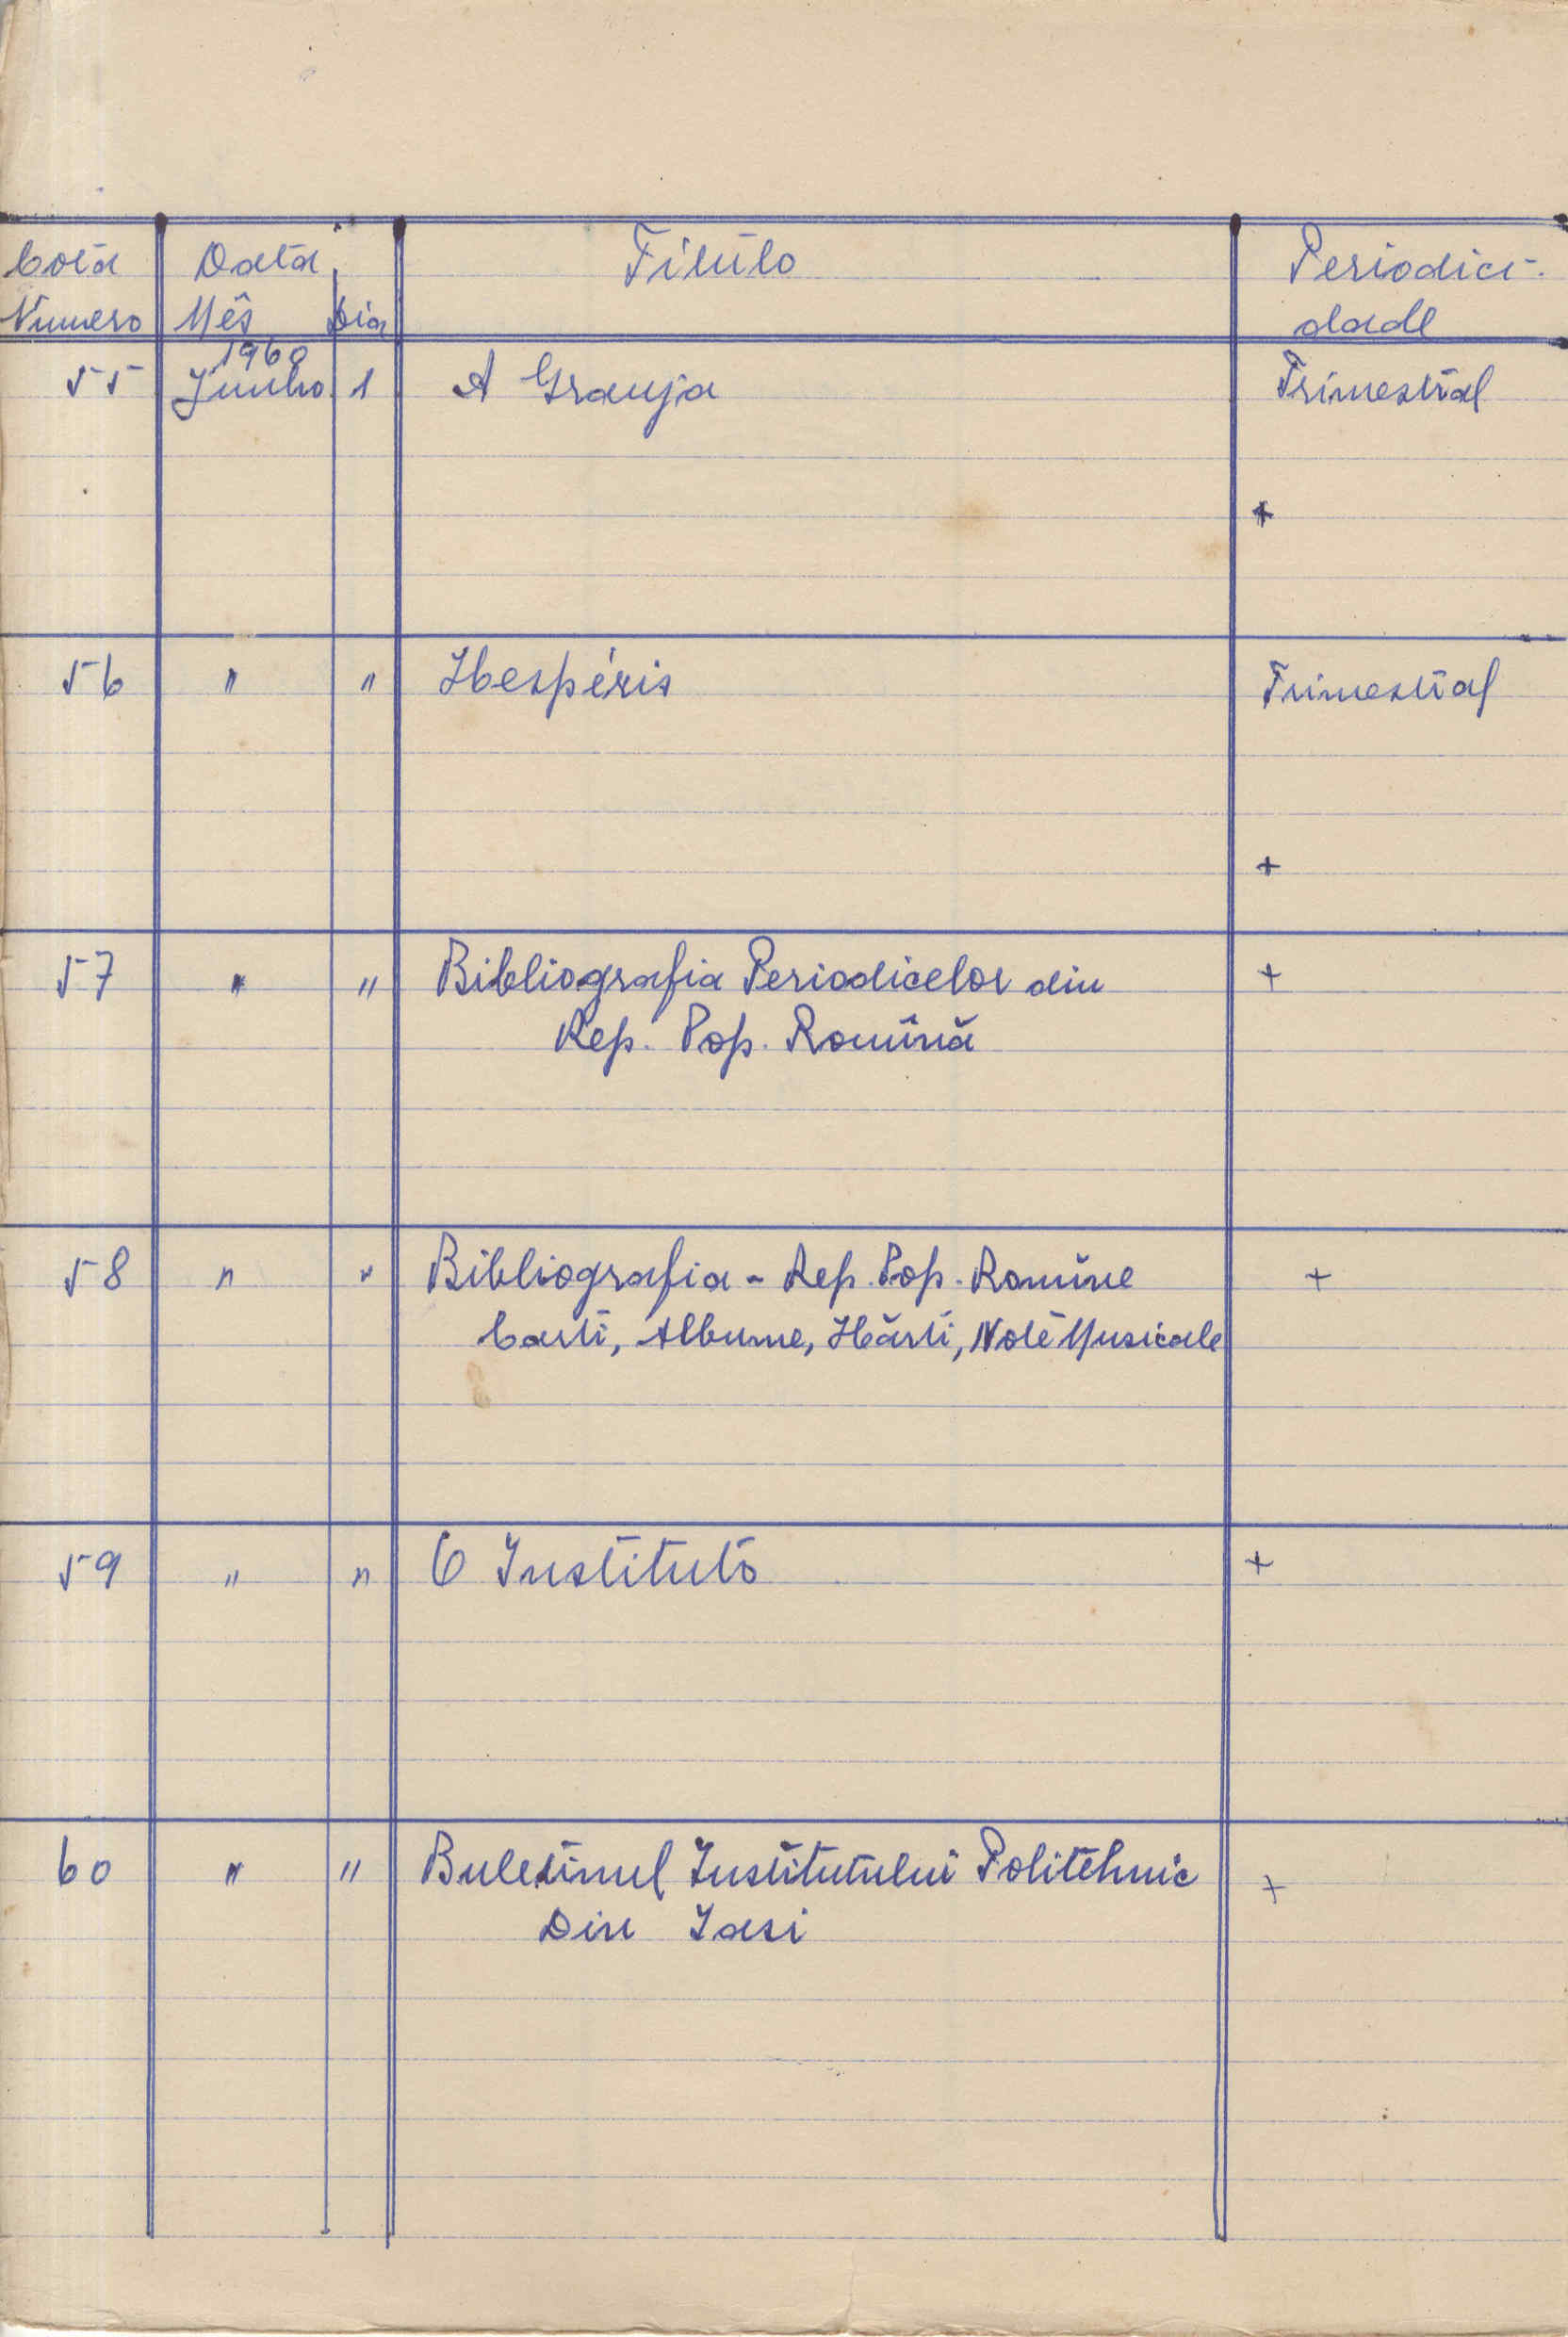 Cota Data Título Periodici-
Numero Mês Dia dade
1960
55 Junho 1 A Granja Trimestral
+
56 " " Hespéris Trimestral
+
57 " " Bibliografia Periodicelor din +
Rep. Pop. Romînă
58 " " Bibliografia - Rep. Pop. Romîne +
Carti, Albume, Hărti, Note Musicale
59 " " O Instituto +
60 " " Buletinul Institutului Politehnic +
Din Iasi